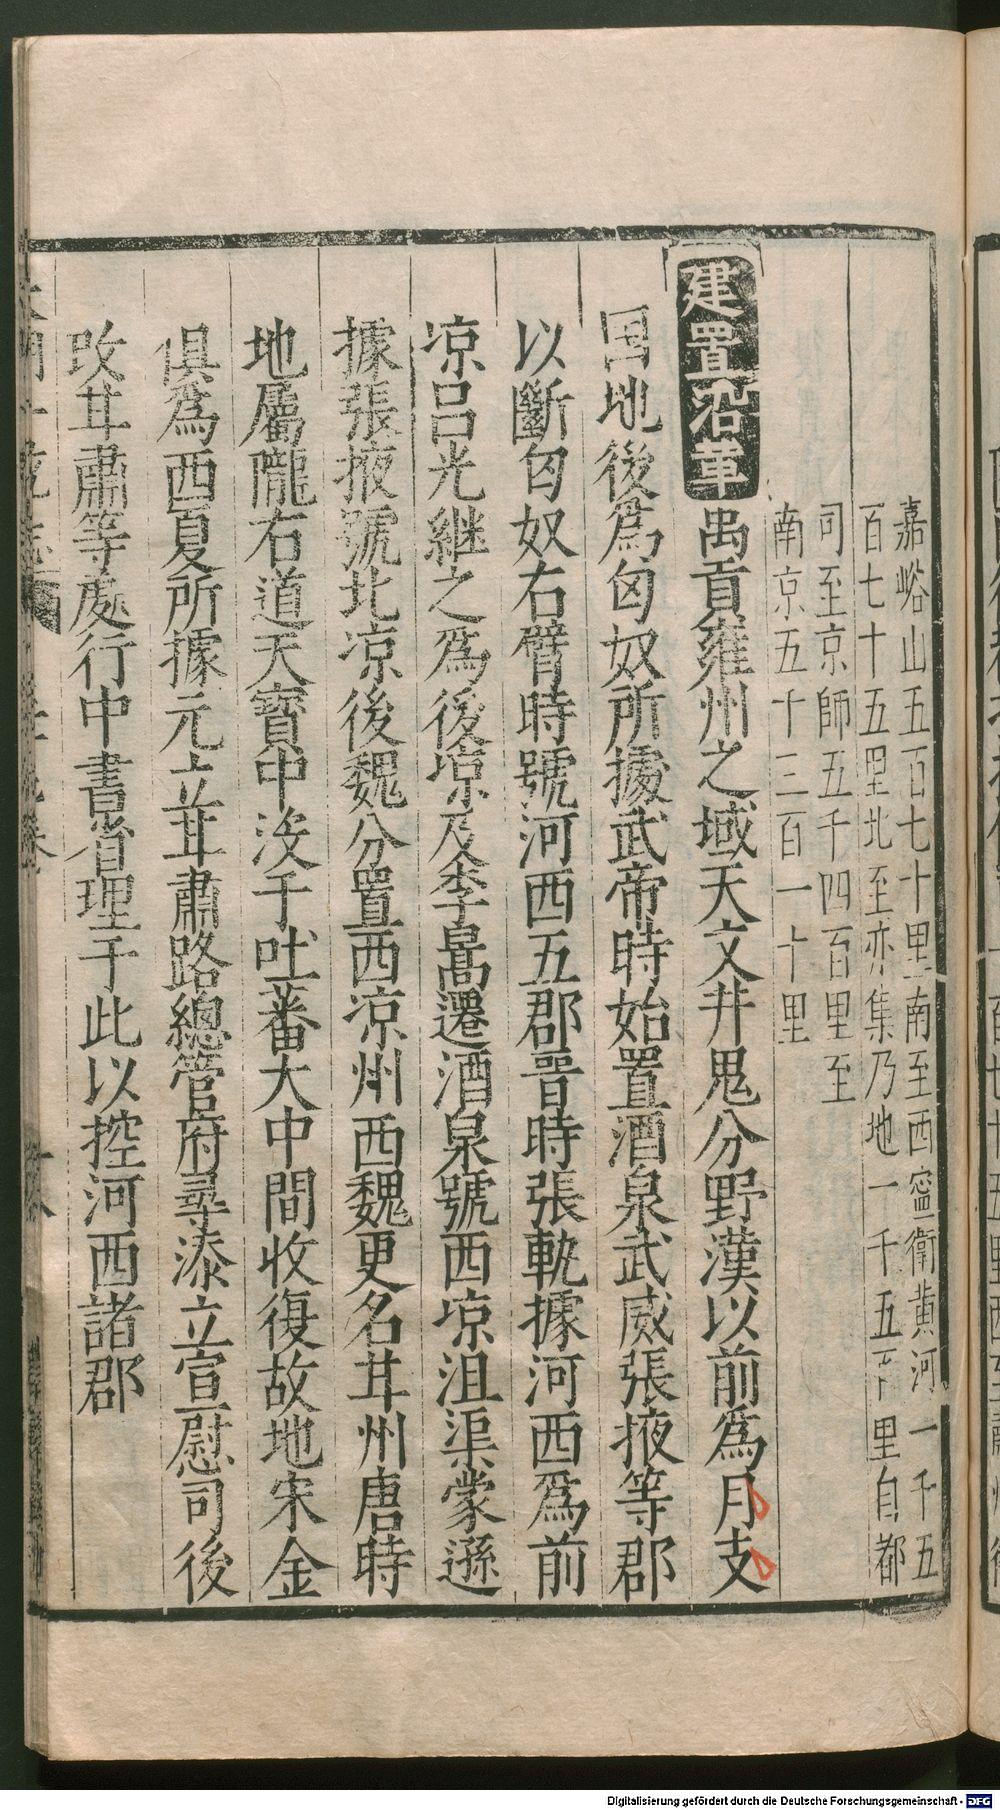 嘉峪山五百七十里南至西寧衛黃河一千五
百七十五里北至亦集乃地一千五百里自都
司至京師五千四百里至
南京五十三百一十里
建置沿革禹貢雍州之域天文井鬼分野漢以前爲月支
国地後爲匈奴所據武帝時始置酒泉武威張掖等郡
以斷匈奴右臂時號河西五郡晉時張軌據河西爲前
凉呂光継之爲後凉及李暠遷酒泉號西凉沮渠蒙遜
據張掖號北凉後魏分置西凉州西魏更名甘州唐時
地屬隴右道天寶中没于吐蕃大中間收復故地宋金
俱爲西夏所據元立甘肅路總管府尋添立宣慰司後
改甘肅等處行中書省理于此以控河西諸郡
Digitalisierung gefördert durch die Deutsche Forschungsgemeinschaft - DFG